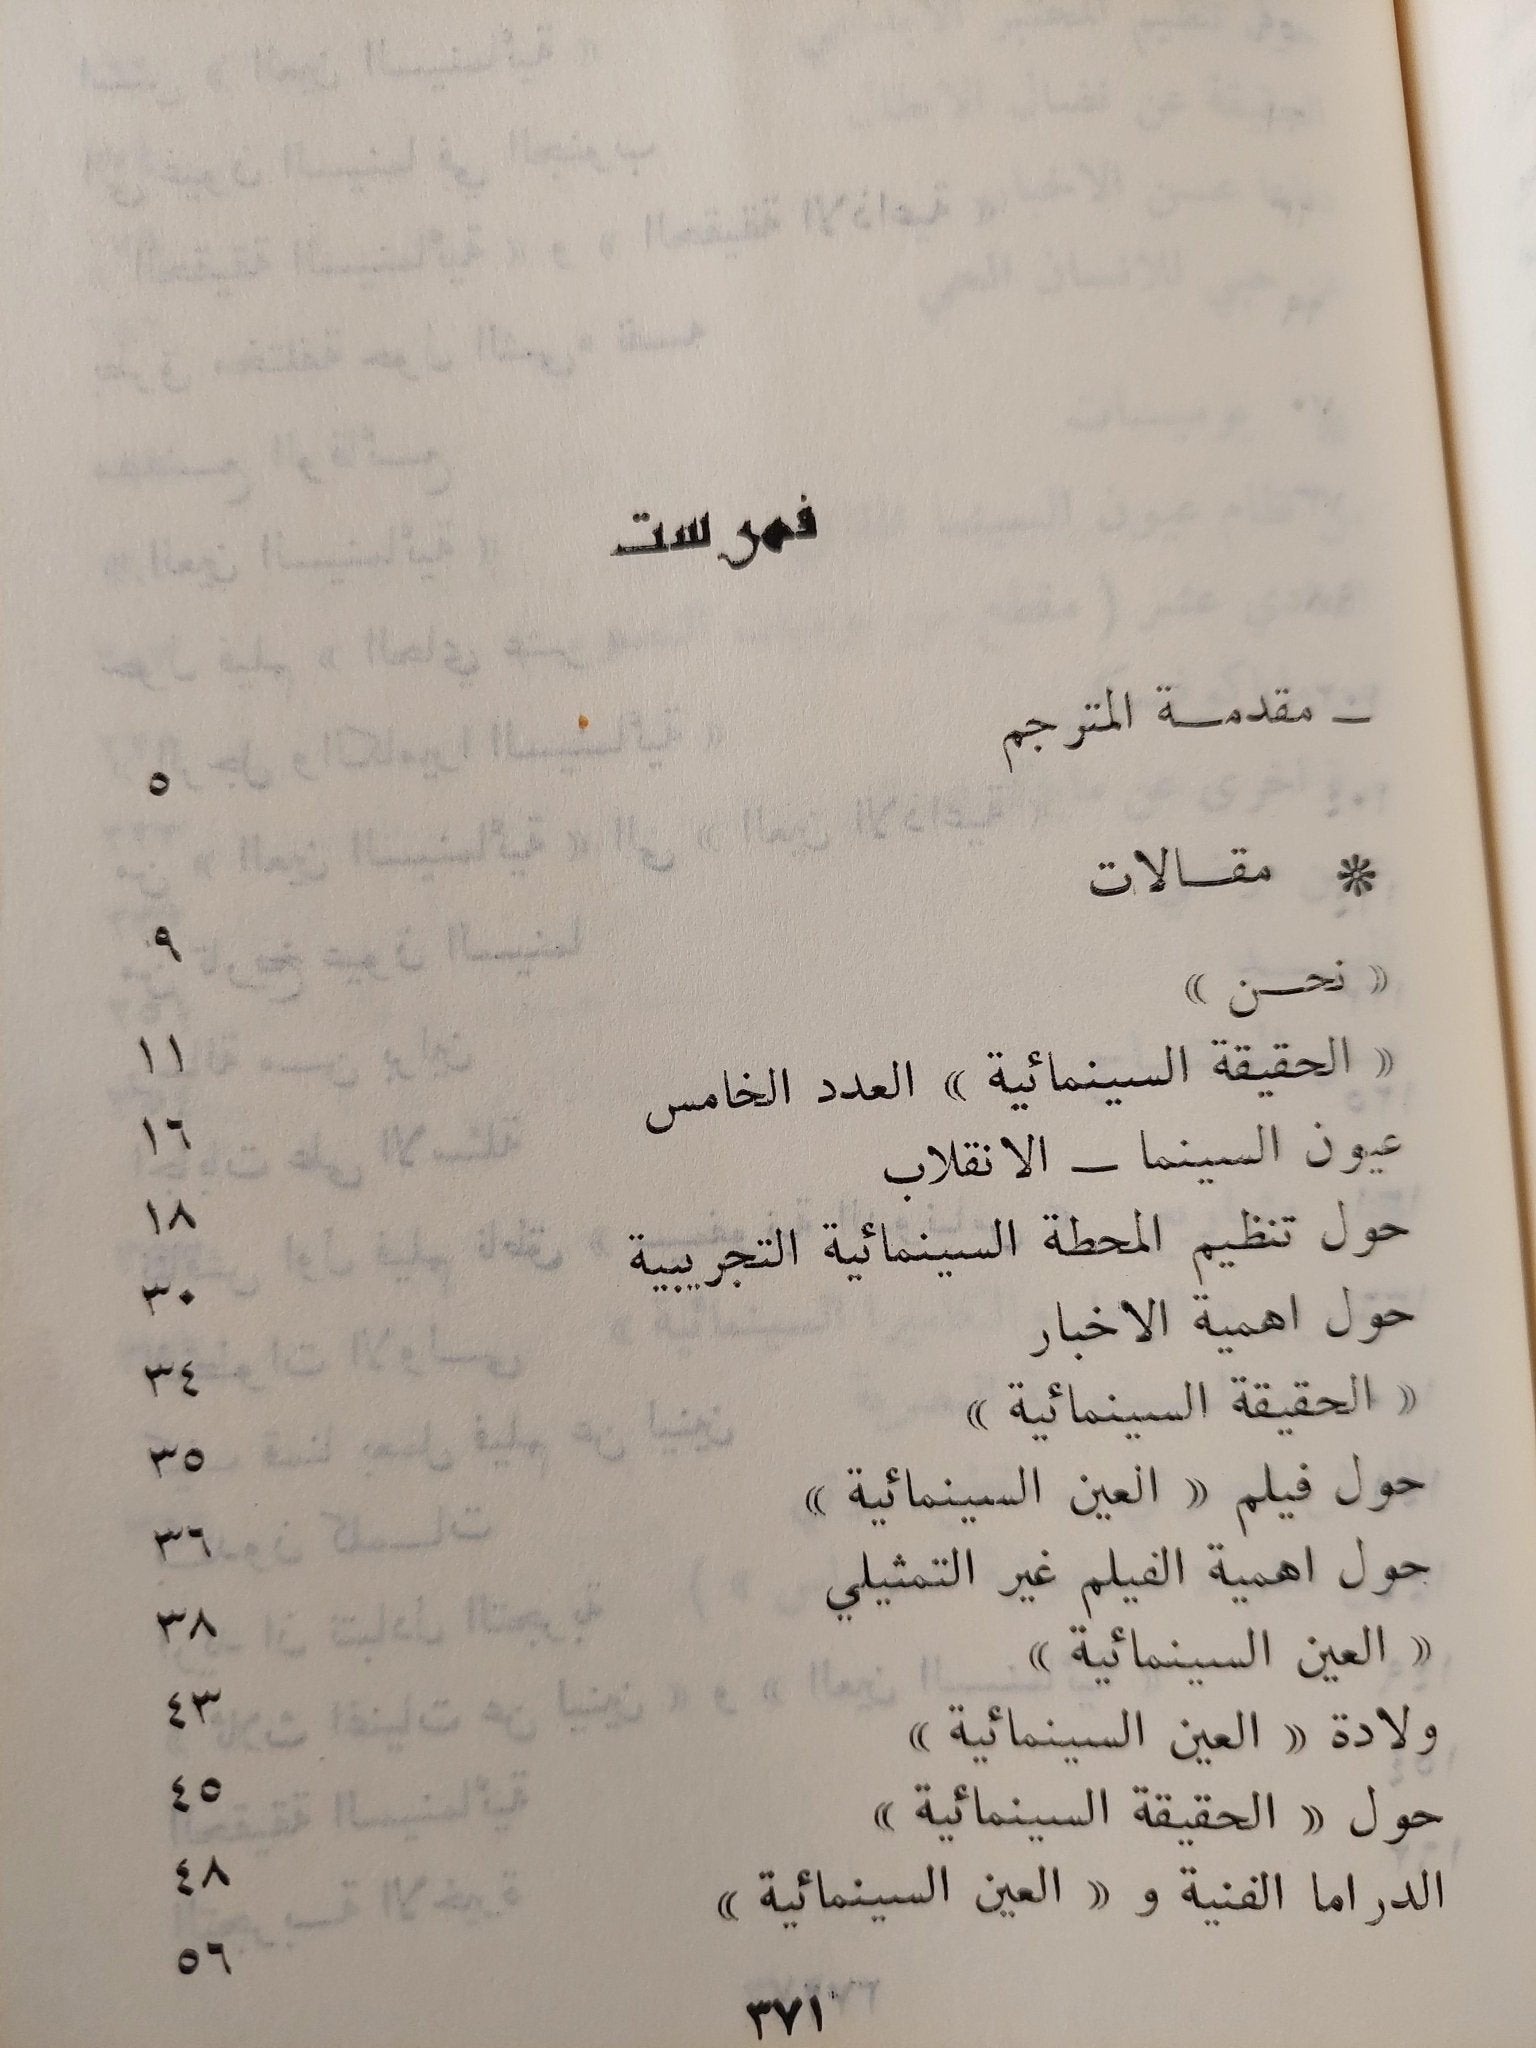 فهرست
ـ مقدمـة المترجم ٥
* مقـالات ٩
« نحـن » ١١
« الحقيقة السينمائية » العدد الخامس ١٦
عيون السينما ـ الانقلاب ١٨
حول تنظيم المحطة السينمائية التجريبية ٣٠
حول اهمية الاخبار ٣٤
« الحقيقة السينمائية » ٣٥
حول فيلم « العين السينمائية » ٣٦
حول اهمية الفيلم غير التمثيلي ٣٨
« العين السينمائية » ٤٣
ولادة « العين السينمائية » ٤٥
حول « الحقيقة السينمائية » ٤٨
الدراما الفنية و « العين السينمائية » ٥٦
٣٧١